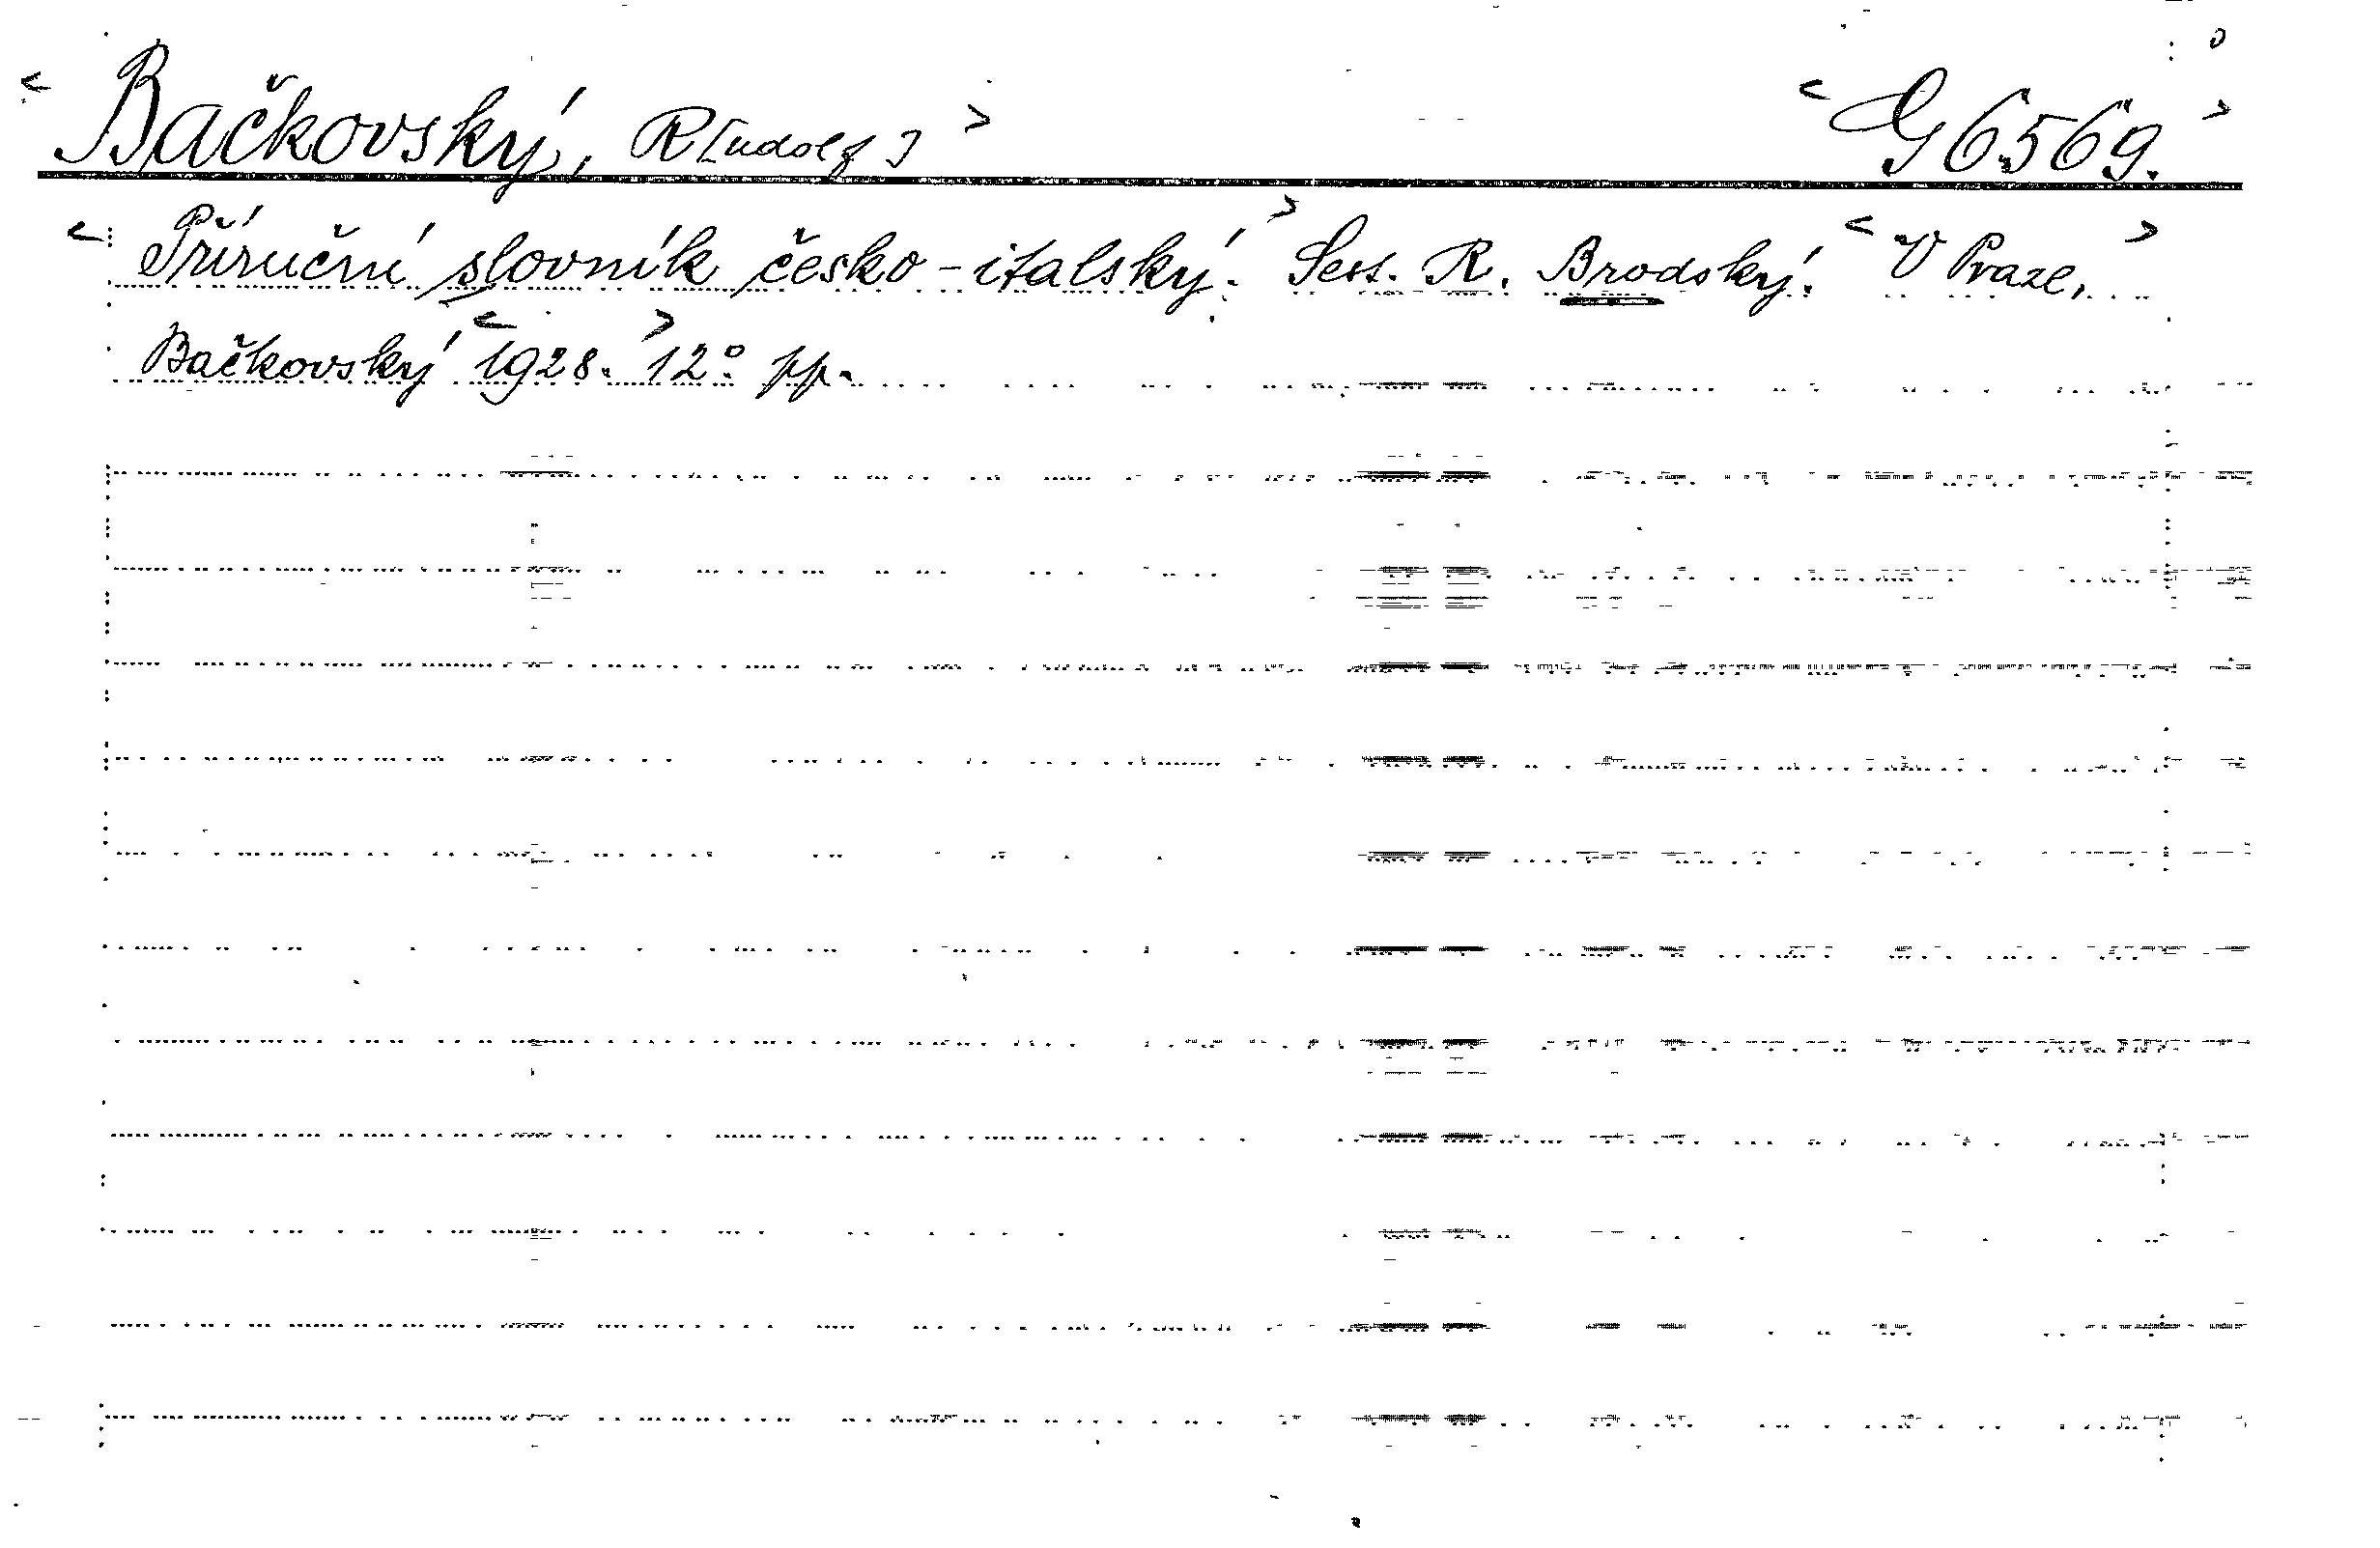 < Bačkovský, R[udolf] > < G 6569. >
Pří
< Příruční slovník česko-italský. > Sest. R. Brodský. < V Praze, >
Bačkovský < 1928. > 12° pp.